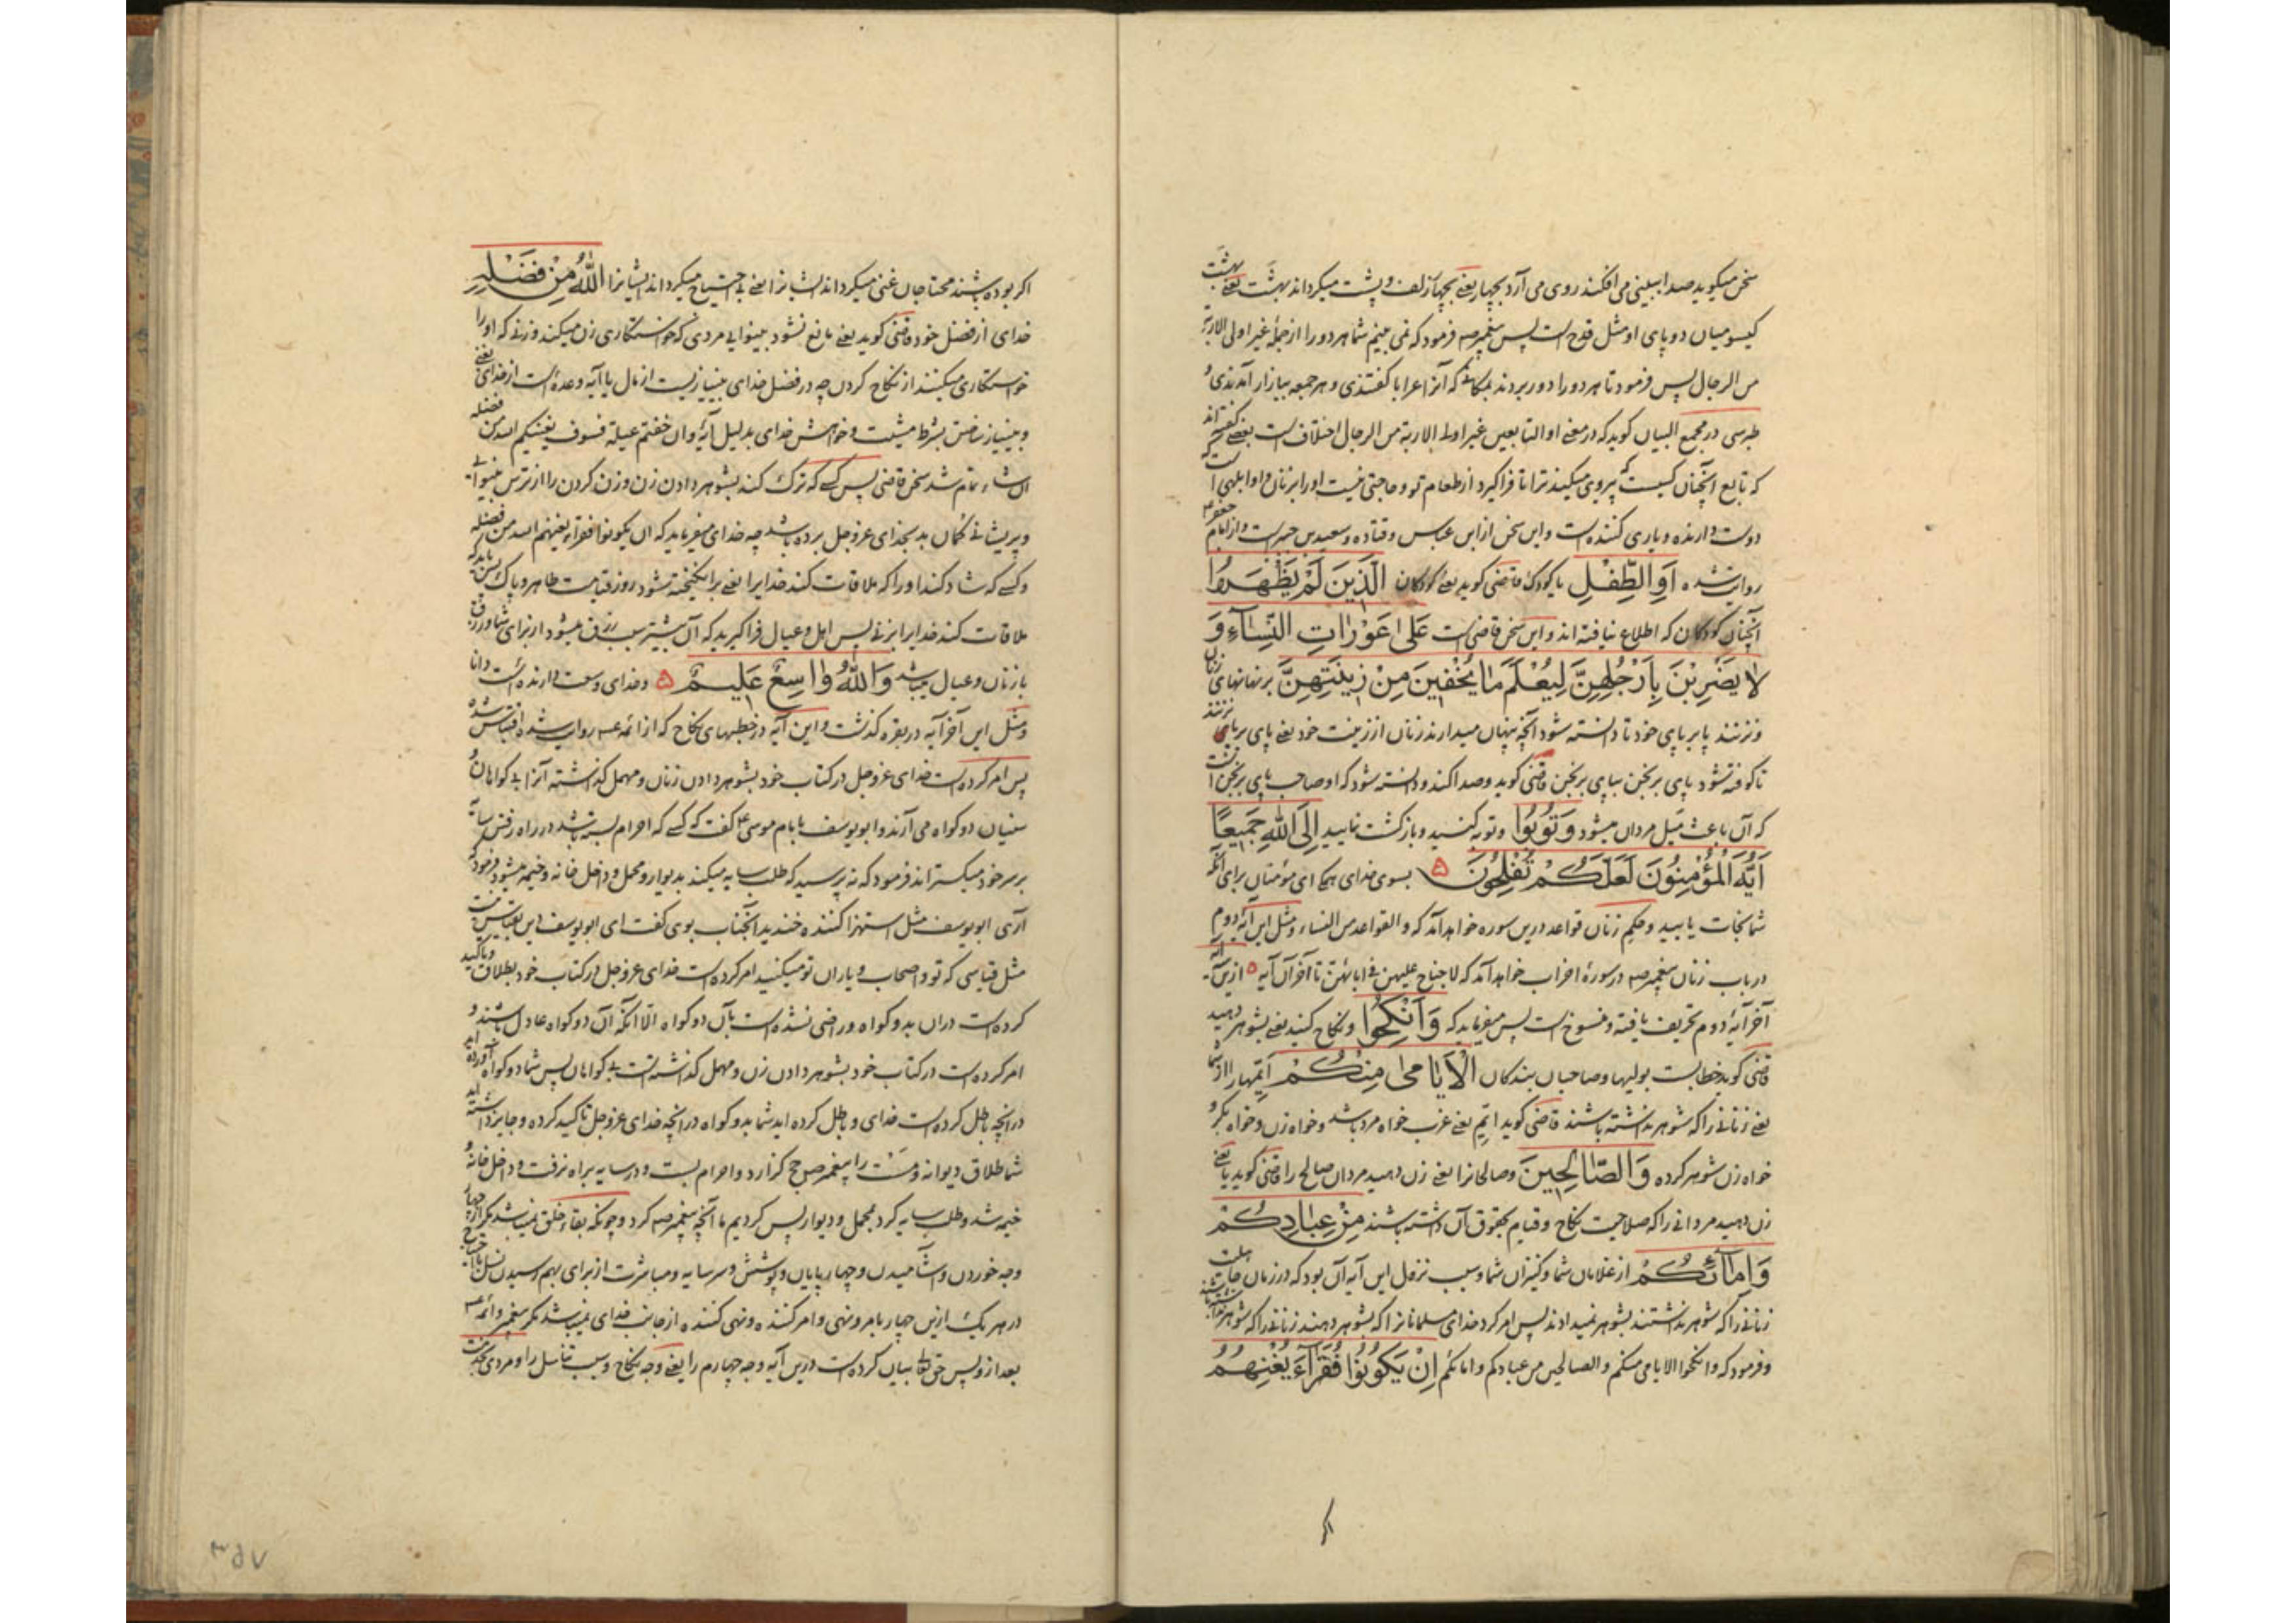 سخن میکوید صدا ببینی می افکند روی می آرد بچهار یعنی بچهار زلف و پشت میکرداند بهشت یعنی بهشت
کیسو میان دو پای او مثل قدح است پس پیغمبر صه فرمود که نمی بینم شما هر دو را از جمله غیر اولی الاربة
من الرجال پس فرمود تا هر دو را دور بردند بمکانی که آنرا عرایا کفتندی و هر جمعه ببازار آمدندی و
طبرسی در مجمع البیان کوید که در معنی او التابعین غیر اولی الاربة من الرجال اختلاف است بعضی کفته اند
که تابع آنچنان کسیست که پیروی میکیند ترا تا فرا کیرد از طعام تو و حاجتی نیست او را بزنان و او ابلهی است که
دوست دارنده و یاری کننده است و این سخن از ابن عباس و قتاده و سعید بن جبیر است و از امام جعفر ع
روایت شده اَوِ الطِّفْلِ یا کودک قاضی کوید یعنی کودکان الَّذِینَ لَمْ یَظْهَرُوا
آنچنان کودکان که اطلاع نیافته اند و این سخن قاضی است عَلیٰ عَوْرَاتِ النِّسَآءِ وَ
لَا یَضْرِبْنَ بِاَرْجُلِهِنَّ لِیُعْلَمَ مَا یُخْفِینَ مِنْ زِینَتِهِنَّ بر نهانهای زنان
و نزنند پا بر پای خود تا دانسته شود آنچه پنهان میدارند زنان از زینت خود یعنی پای بر پای نزنند
تا کوفته شود پای برنجن بپای برنجن قاضی کوید و صدا کند و دانسته شود که او صاحب پای برنجن است
که آن باعث میل مردان میشود وَتُوبُوا و توبه کنید و باز کشت نمایید اِلَی اللهِ جَمِیعًا
اَیُّهَ الْمُؤْمِنُونَ لَعَلَّکُمْ تُفْلِحُونَ ۵ بسوی خدای همکی ای مؤمنان برای آنکه
شما نجات یابید و حکم زنان قواعد درین سوره خواهد آمد که والقواعد من النساء و مثل این آیه دوم
در باب زنان پیغمبر صه در سورهٔ احزاب خواهد آمد که لا جناح علیهن فی ابائهن تا آخر آن آیه ۵ ازین آیه تا
آخر آیهٔ دوم تحریف یافته و منسوخ است پس میفرماید که وَاَنْکِحُوا و نکاح کنید یعنی بشوهر دهید
قاضی کوید خطابست بولیها و صاحبان بندکان الْاَیَامیٰ مِنْکُمْ ایّمها را از شما
یعنی زنانی را که شوهر نداشته باشند قاضی کوید ایّم یعنی عزب خواه مرد باشد و خواه زن و خواه بکر و
خواه زن شوهر کرده وَالصَّالِحِینَ و صالحانرا یعنی زن دهید مردان صالح را قاضی کوید یا یعنی
زن دهید مردانی را که صلاحیت نکاح و قیام بحقوق آن داشته باشند مِنْ عِبَادِکُمْ
وَاِمَآئِکُمْ از غلامان شما و کنیزان شما و سبب نزول این آیه آن بود که در زمان جاهلیت
زنانی را که شوهر نداشتند بشوهر نمیدادند پس امر کرد خدای مسلمانانرا که بشوهر دهند زنانی را که شوهر نداشته باشند
و فرمود که وانکحوا الایامی منکم والصالحین من عبادکم وامائکم اِنْ یَکُونُوا فُقَرَآءَ یُغْنِهِمُ
اکر بوده باشند محتاجان غنی میکرداند ایشانرا یعنی بی احتیاج میکرداند ایشانرا اللهُ مِنْ فَضْلِهِ
خدای از فضل خود قاضی کوید یعنی مانع نشود بینوایی مردی که خواستکاری زن میکند و زنی که او را
خواستکاری میکنند از نکاح کردن چه در فضل خدای بی نیازیست از مال یا آیه وعدهٔ است از خدای یعنی
و بی نیاز ساختن بشرط مشیت و خواهش خدای بدلیل آیهٔ وان خفتم عیلة فسوف یغنیکم الله من فضله
ان شاء تمام شد سخن قاضی پس کسی که ترک کند بشوهر دادن زن و زن کردن را از ترس بینوایی
و پریشانی کمان بد بخدای عز وجل برده باشد چه خدای میفرماید که ان یکونوا فقراء یغنهم الله من فضله
و کسی که شاد کند او را که ملاقات کند خدایرا یعنی برانکیخته شود روز قیامت طاهر و پاک پس باید که
ملاقات کند خدایرا بزنی پس اهل و عیال فرا کیرید که آن بیشتر سبب رزق میشود از برای شما و رزق
با زنان و عیال میباشد وَاللهُ وَاسِعٌ عَلِیمٌ ۵ و خدای وسعت دارنده است دانا
و مثل این آخر آیه در بقره کذشت و این آیه در خطبهای نکاح که از ائمه عه روایت شده اقتباس شده
پس امر کرده است خدای عز وجل در کتاب خود بشوهر دادن زنان و مهمل کذاشته آنرا بی کواهان و
سنیان دو کواه می آرند و ابو یوسف با امام موسی ع کفت که کسی که احرام بسته باشد در راه رفتن سایه
بر سر خود میکستراند فرمود که نه پرسید که طلب سایه میکند بدیوار و محمل و داخل خانه و خیمه میشود فرمود که
آری ابو یوسف مثل استهزا کننده خندید آنجناب بوی کفت ای ابو یوسف دین بقیاس نیست
مثل قیاسی که تو و اصحاب و یاران تو میکنید امر کرده است خدای عز وجل در کتاب خود بطلاق و تاکید
کرده است دران بدو کواه و راضی نشده است بآن دو کواه الا آنکه آن دو کواه عادل باشند و
امر کرده است در کتاب خود بشوهر دادن زن و مهمل کذاشته است بی کواهان پس شما دو کواه آورده اید
در آنچه باطل کرده است خدای و باطل کرده اید شما بدو کواه در آنچه خدای عز وجل تاکید کرده و جایز داشته اید
شما طلاق دیوانه و مست را پیغمبر ص حج کزارد و احرام بست و در سایه براه نرفت و داخل خانه و
خیمه شد و طلب سایه کرد بمحمل و دیوار پس کردیم ما آنچه پیغمبر صه کرد و چونکه بقاء خلق نمیباشد مکر از چهار
وجه خوردن و آشامیدن و چهارپایان و پوشش و سر سایه و مباشرت از برای بهم رسیدن نسل
در هر یک ازین چهار با امر و نهی و امر کننده و نهی کننده از جانب خدای نمیباشد مکر پیغمبر و ائمه عه
بعد از و پس حق تعالی بیان کرده است درین آیه وجه چهارم را یعنی وجه نکاح و سبب تناسل را و مردی بخدمت
۳۵۷